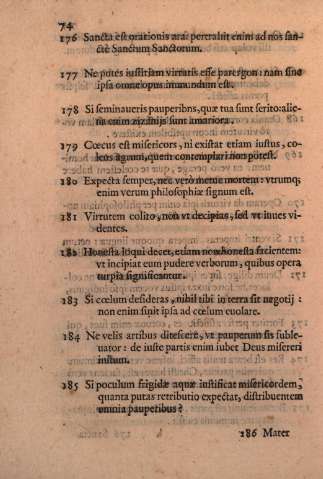 74
176 Sancta est orationis ara: pertrahit enim ad nos san-
ctè Sanctum Sanctorum.
177 Ne putes iustitiam virtutis esse parergon: nam sine
ipsa omne opus immundum est.
178 Si seminaueris pauperibus, quæ tua sunt serito: alie-
na enim zizanijs sunt amariora.
179 Cœcus est misericors, ni existat etiam iustus, co-
lens agnum, quem contemplari non potest.
180 Expecta semper, nec verò metue mortem: vtrumq;
enim verum philosophiæ signum est.
181 Virtutem colito, non vt decipias, sed vt iuues vi-
dentes.
182 Honesta loqui decet, etiam ne inhonesta facientem:
vt incipiat eum pudere verborum, quibus opera
turpia significantur.
183 Si cœlum desideras, nihil tibi in terra sit negotij:
non enim sinit ipsa ad cœlum euolare.
184 Ne velis artibus ditescere, vt pauperum sis suble-
uator: de iuste partis enim iubet Deus misereri
iustum.
185 Si poculum frigidæ aquæ iustificat misericordem,
quanta putas retributio expectat, distribuentem
omnia pauperibus?
186 Mater